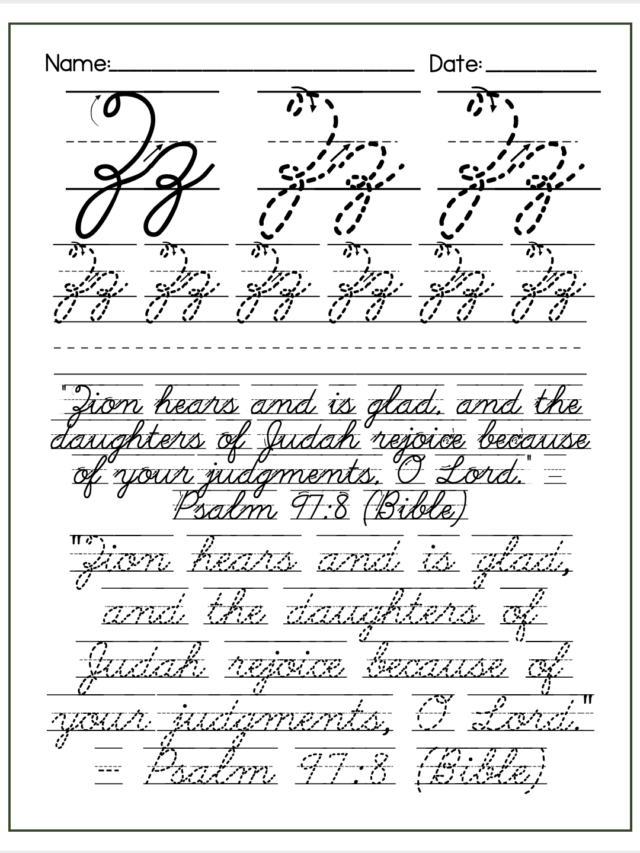 Name: Date:
Zz Zz Zz
Zz Zz Zz Zz Zz Zz
"Zion hears and is glad, and the
daughters of Judah rejoice because
of your judgments, O Lord." -
Psalm 97:8 (Bible)
"Zion hears and is glad,
and the daughters of
Judah rejoice because of
your judgments, O Lord."
- Psalm 97:8 (Bible)